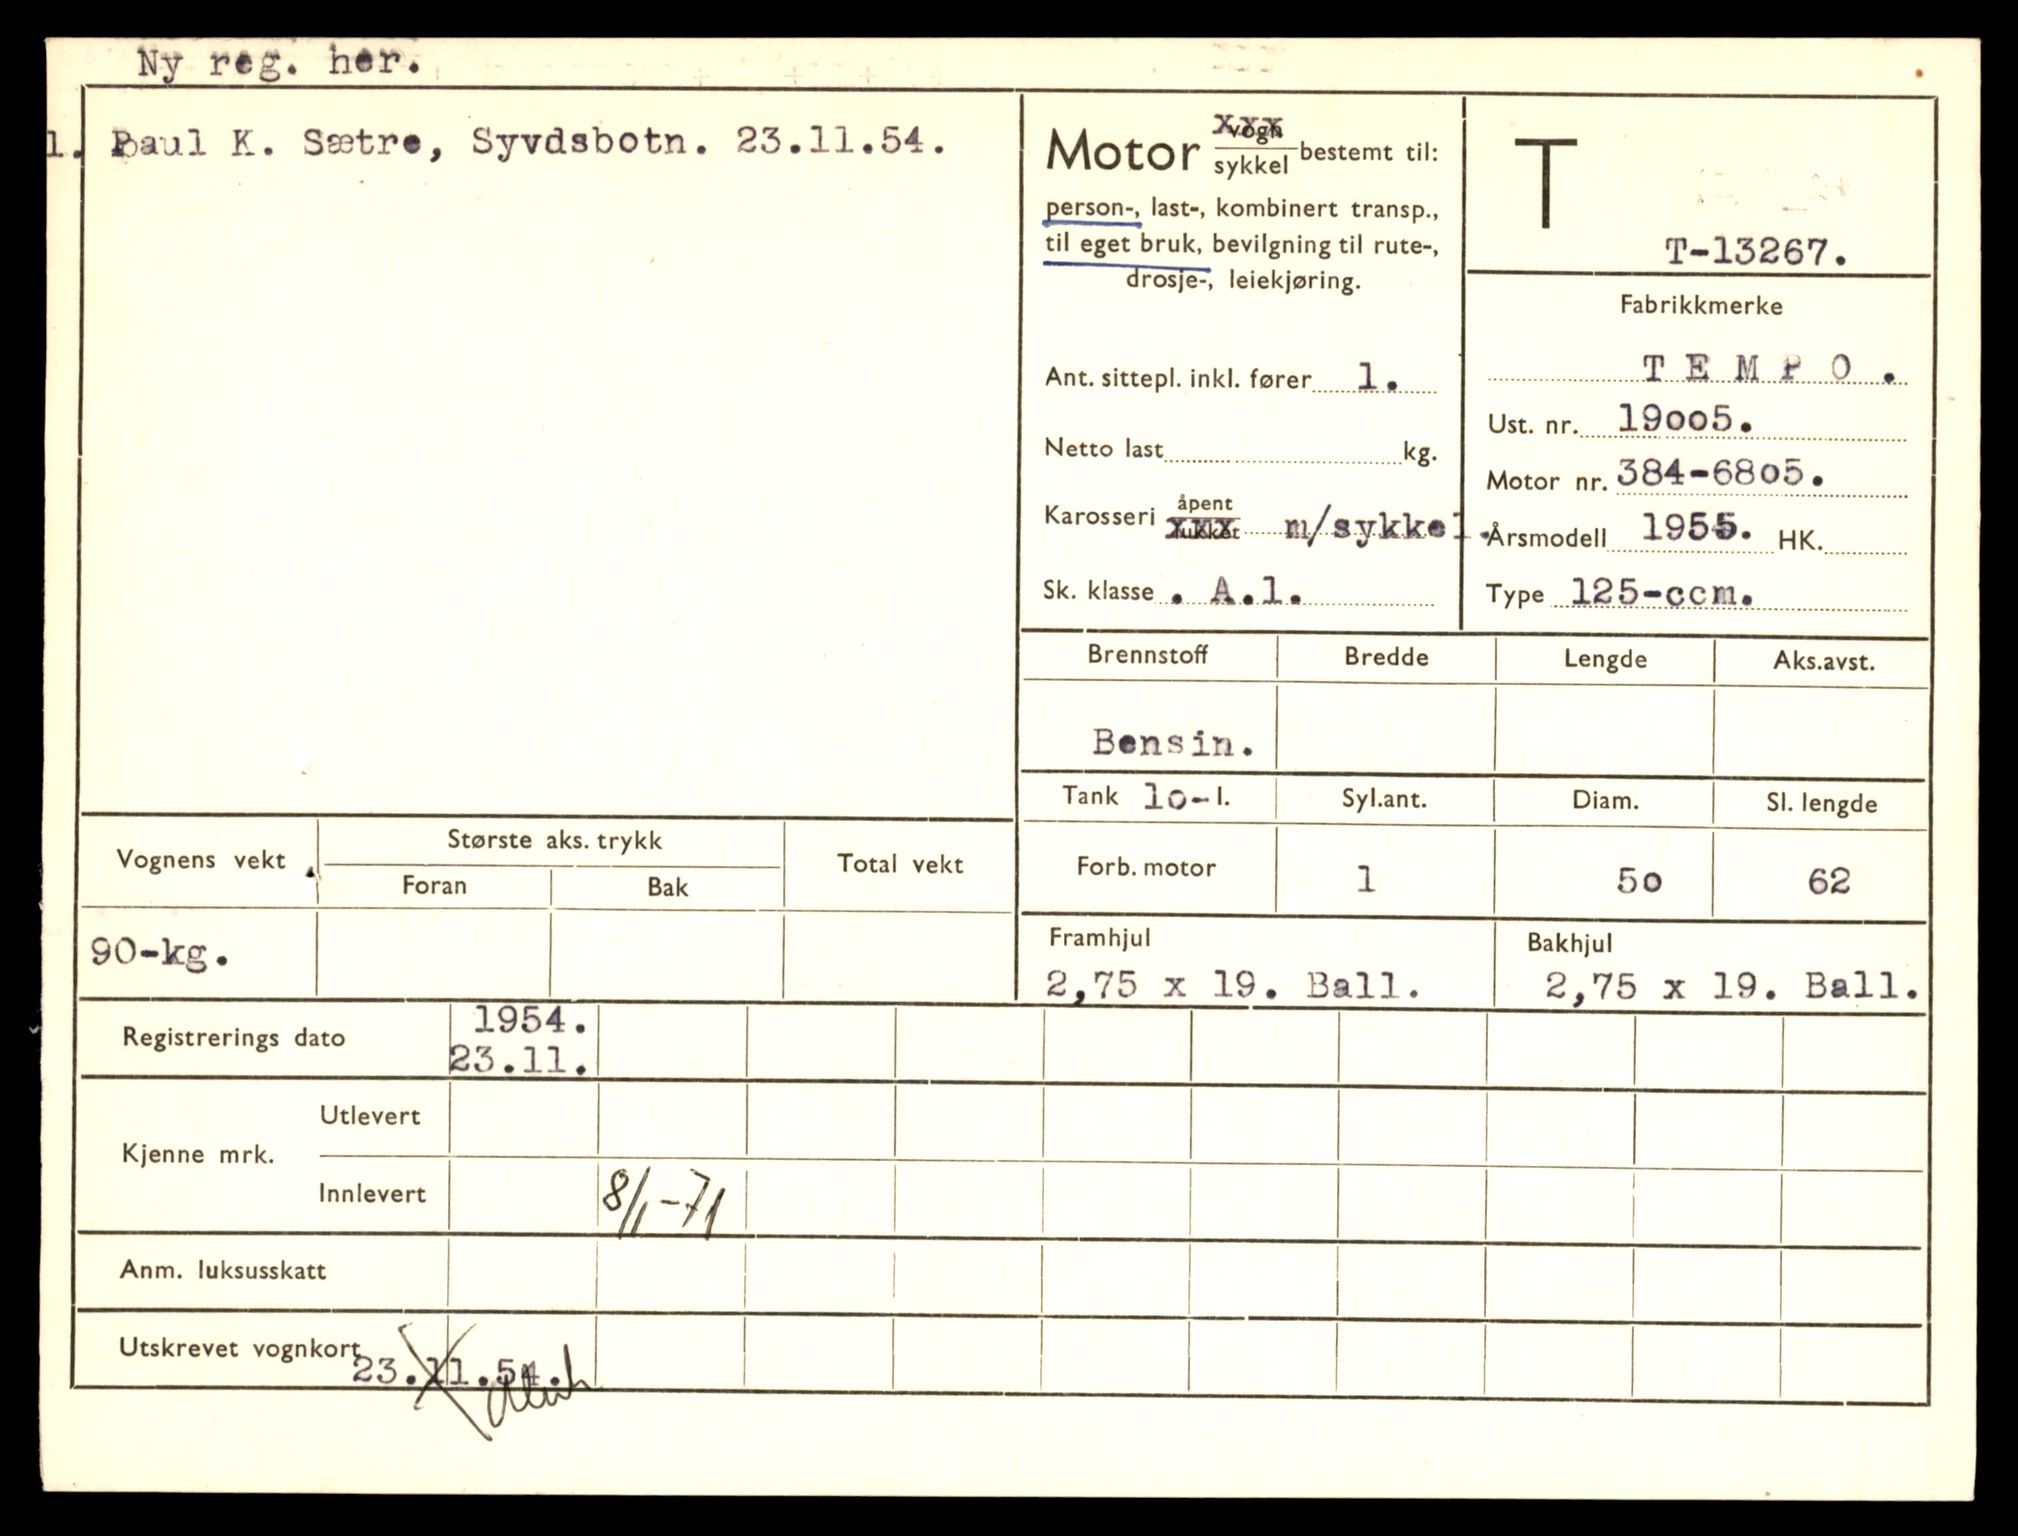 Ny reg. her.
1. Paul K. Sætre, Syvdsbotn. 23.11.54.
Motor xxx sykkel bestemt til:
person-, last-, kombinert transp.,
til eget bruk, bevilgning til rute-,
drosje-, leiekjøring.
Ant. sittepl. inkl. fører 1.
Netto last kg.
Karosseri åpent xxx m/sykkel.
Sk. klasse . A.1.
T
T-13267.
Fabrikkmerke
T E M P O .
Ust. nr. 19005.
Motor nr. 384-6805.
Årsmodell 1955. HK.
Type 125-ccm.
Brennstoff Bredde Lengde Aks.avst.
Bensin.
Tank 10- l. Syl.ant. Diam. Sl. lengde
Forb. motor 1 50 62
Framhjul Bakhjul
2,75 x 19. Ball. 2,75 x 19. Ball.
Vognens vekt Største aks. trykk Total vekt
Foran Bak
90-kg.
Registrerings dato 1954.
23.11.
Kjenne mrk. Utlevert
Innlevert 8/1-71
Anm. luksusskatt
Utskrevet vognkort 23.11.54.